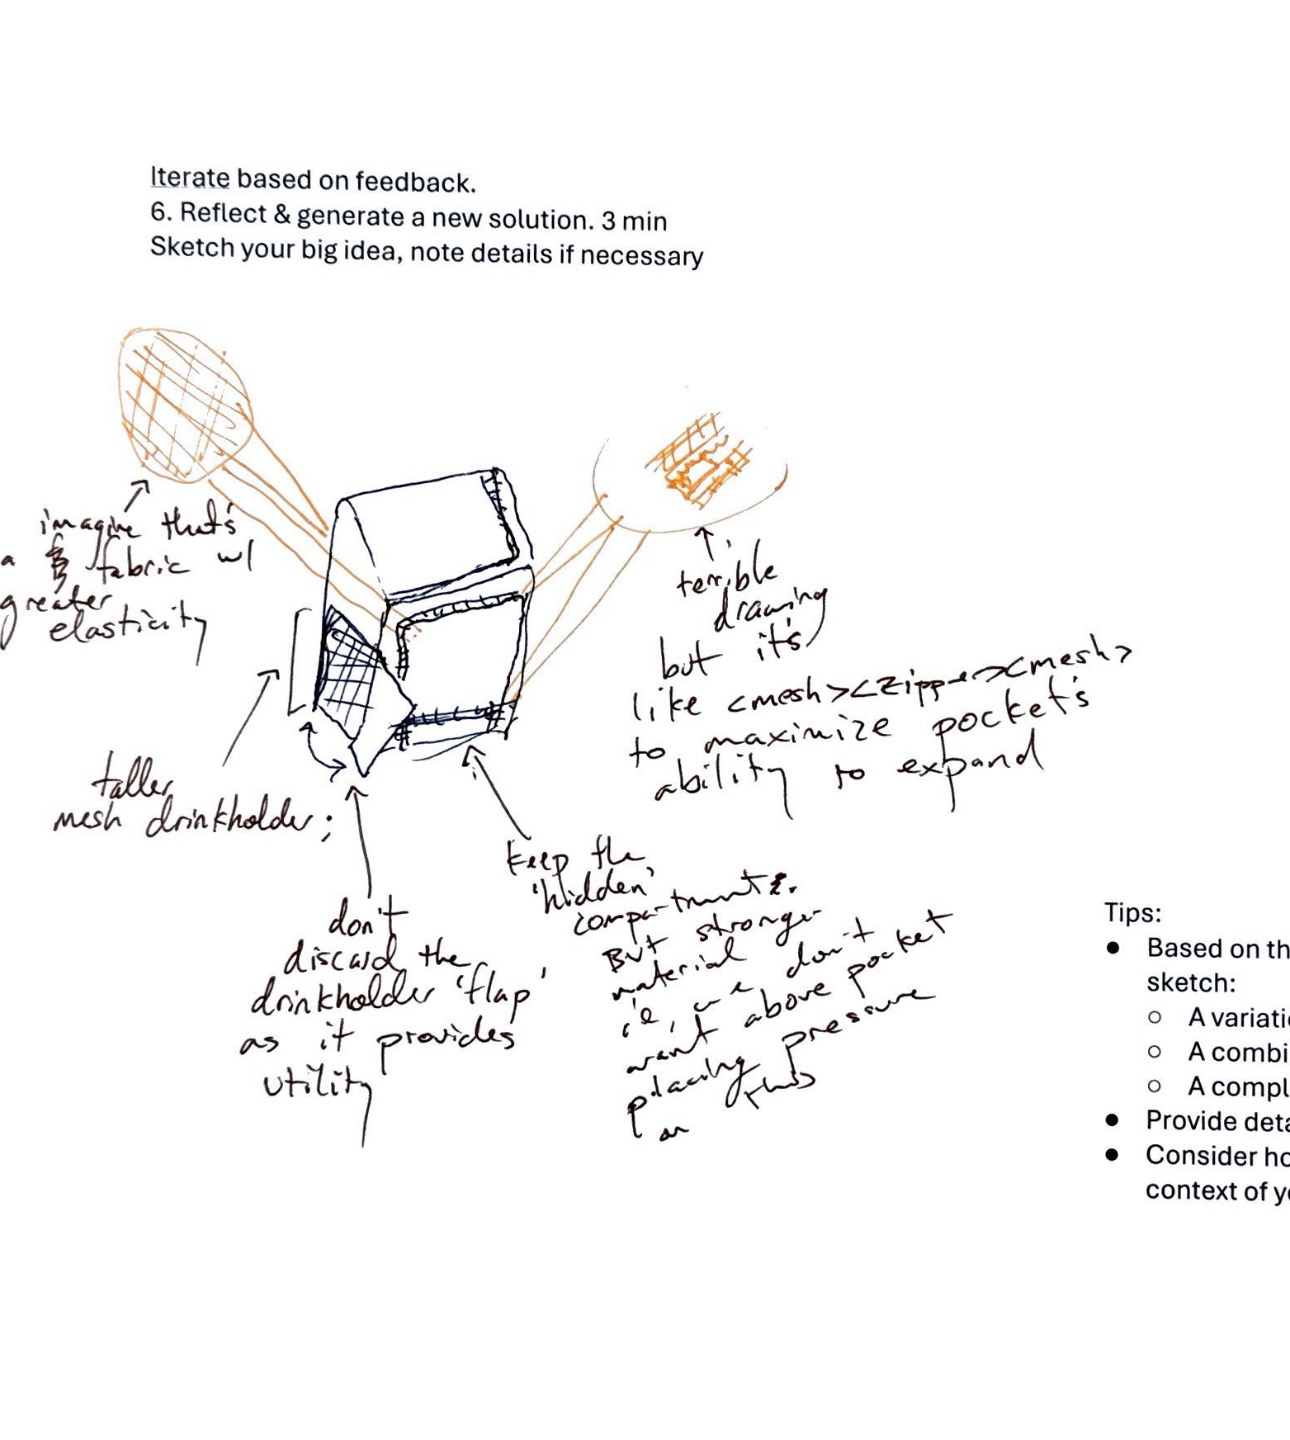 Iterate based on feedback.
6. Reflect & generate a new solution. 3 min
Sketch your big idea, note details if necessary
imagine that's
a fabric w/
greater
elasticity
terrible
drawing
but it's
like <mesh><zipper><mesh>
to maximize pocket's
ability to expand
taller
mesh drinkholder;
don't
discard the
drinkholder 'flap'
as it provides
utility
keep the
'hidden'
compartment.
But stronger
material
ie, we don't
want above pocket
placing pressure
on this
Tips:
● Based on th
sketch:
○ A variati
○ A combi
○ A compl
● Provide deta
● Consider ho
context of yo